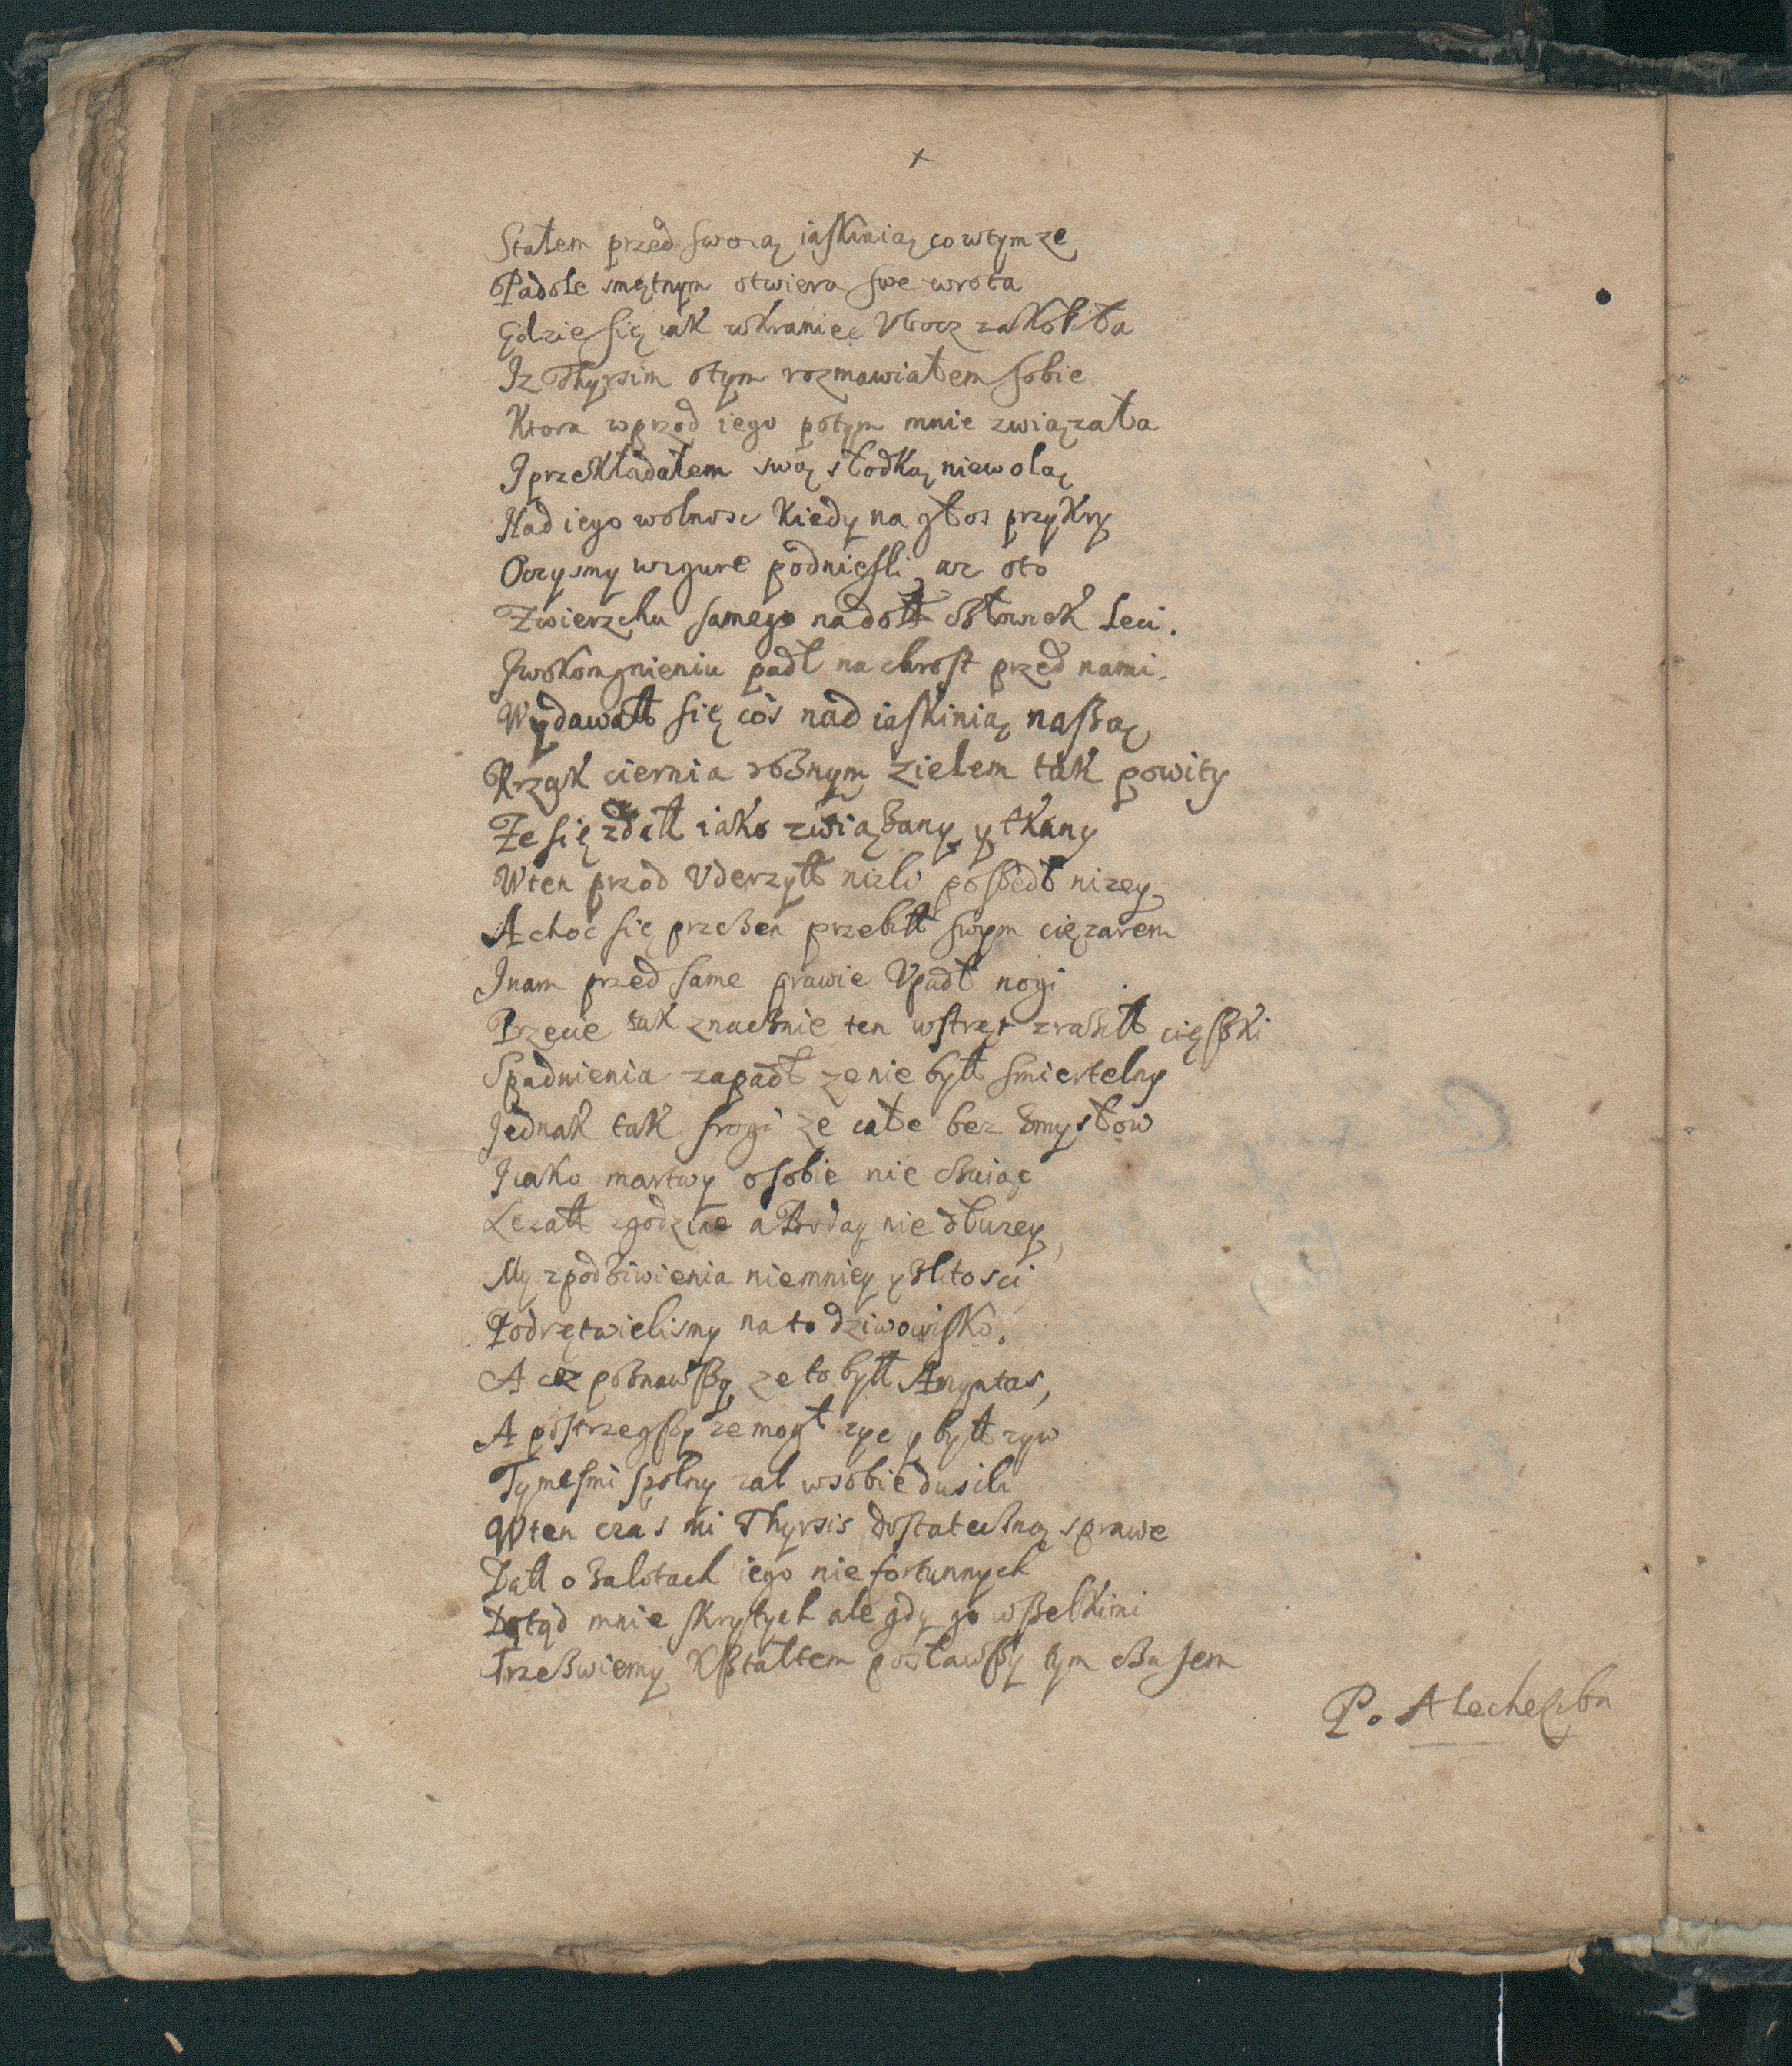 +
Stałem przed swoią iaskinią co wtymze
Padole smętnym otwiera swe wrota
Gdzie się iak wkranięc Vbocz zakołiła
Iz Thyrsim otym rozmawiałem sobie
Ktora wprzod iego potym mnie związała
I przekładałem swą słodką niewolą
Nad iego wolnosc kiedy na głos przykry
Oczysmy wzgure podniesli, az oto
Zwierzchu samego nadół człowiek leci.
Iwokomgnieniu padł na chrost przed nami.
Wydawałł się coś nad iaskinią naszą
Krzak ciernia rożnym zielem tak powity
Ze się zdałł iako związany y tkany
Wten przod Vderzył nizli poszedł nizey
A choc się przezeń przebiłł swym cięzarem
Inam przed same prawie Vpadł nogi
Przecie tak znacznie ten wstręt zraziłł cięszki
Spadnienia zapadł ze nie byłł smiertelny
Jednak tak srogi ze całe bez zmysłow
Iiako martwy o sobie nie czuiąc
Lezałł zgodzine a Bodaj nie dłuzey,
My zpodziwienia niemniey y zlitosci
Podrętwielismy na to dziwowisko.
A cz poznawszy ze to byłł Amyntas,
A postrzegszy ze mogł zyc y byłł zyw
Tymesmi spolny zal wsobie dusili
Wten czas mi Thyrsis dostateczną sprawe
Dałł o zalotach iego niefortunnych
Dotąd mnie skrytych ale gdy go wszelkimi
Trzezwiemy kształtem posławszy tym czasem
P. Alechezba